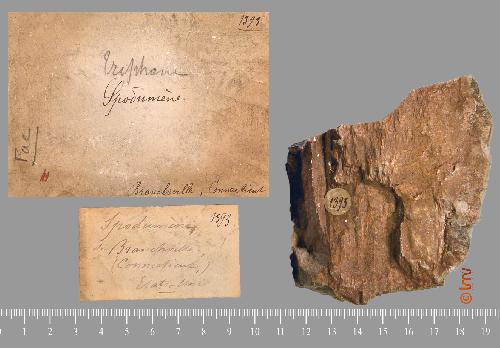 1393
Triphane
Spodumène.
Fac
Branchville, Connecticut
Spodumène, 1393
de Branchville
(Connecticut,)
Etats-Unis
1393
© lmv
0 1 2 3 4 5 6 7 8 9 10 11 12 13 14 15 16 17 18 19